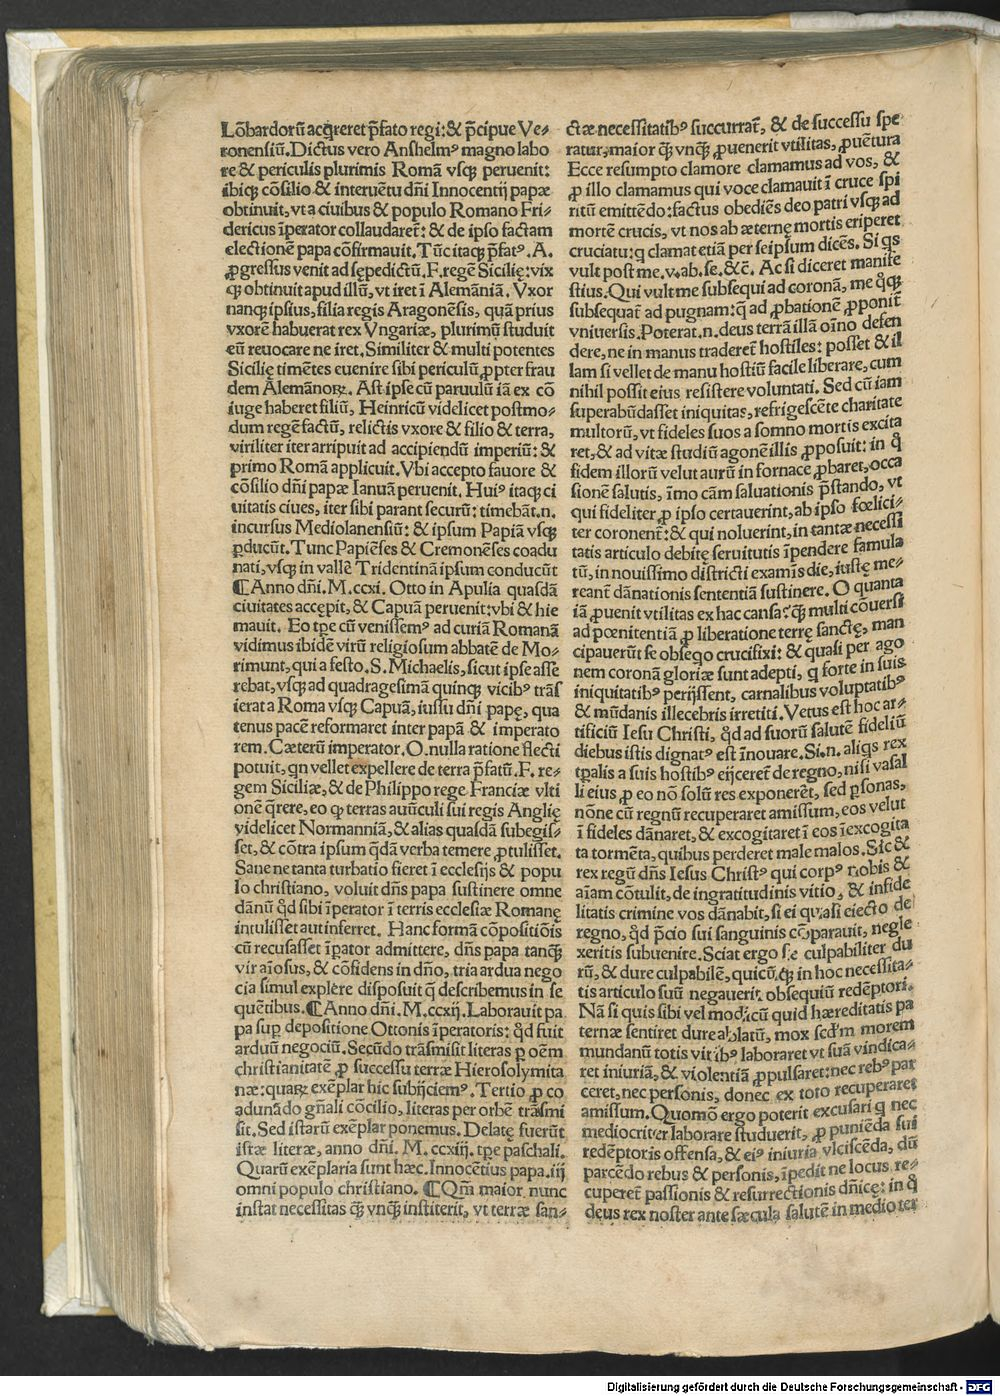 Lõbardorũ acq̃reret p̃fato regi: & p̃cipue Ve⸗
ronensiũ. Dictus vero Anshelmꝰ magno labo
re & periculis plurimis Romã vsqꝫ peruenit:
ibiqꝫ cõsilio & interuẽtu dñi Innocentij papæ
obtinuit, vt a ciuibus & populo Romano Fri⸗
dericus ĩperator collaudaret᷑: & de ipso factam
electionẽ papa cõfirmauit. Tũc itaqꝫ p̃fatꝰ .A.
ꝓgressus venit ad sępedictũ .F. regẽ Sicilię: vix
qꝫ obtinuit apud illũ, vt iret ĩ Alemãniã. Vxor
nanqꝫ ipsius, filia regis Aragonẽsis, quã prius
vxorẽ habuerat rex Vngariæ, plurimũ studuit
eũ reuocare ne iret. Similiter & multi potentes
Sicilię timẽtes euenire sibi periculũ ꝓpter frau
dem Alemãnoꝝ. Ast ipse cũ paruulũ iã ex cõ
iuge haberet filiũ, Heinricũ videlicet postmo⸗
dum regẽ factũ, relictis vxore & filio & terra,
viriliter iter arripuit ad accipiendũ imperiũ: &
primo Romã applicuit. Vbi accepto fauore &
cõsilio dñi papæ Ianuã peruenit. Huiꝰ itaqꝫ ci
uitatis ciues, iter sibi parant securũ: timebãt .n.
incursus Mediolanensiũ: & ipsum Papiã vsqꝫ
ꝑducũt. Tunc Papiẽses & Cremonẽses coadu
nati, vsqꝫ in vallẽ Tridentinã ipsum conducũt
¶Anno dñi. M.ccxi. Otto in Apulia quasdã
ciuitates accępit, & Capuã peruenit: vbi & hie
mauit. Eo tp̃e cũ venissemꝰ ad curiã Romanã
vidimus ibidẽ virũ religiosum abbatẽ de Mo⸗
rimunt, qui a festo .S. Michaelis, sicut ipse asse
rebat, vsqꝫ ad quadragesimã quinqꝫ vicibꝰ trãs
ierat a Roma vsqꝫ Capuã, iussu dñi papę, qua
tenus pacẽ reformaret inter papã & imperato
rem. Cæterũ imperator .O. nulla ratione flecti
potuit, qn vellet expellere de terra p̃fatũ .F. re⸗
gem Siciliæ, & de Philippo rege Franciæ vlti
onẽ q̃rere, eo qꝙ terras auũculi sui regis Anglię
videlicet Normanniã, & alias quasdã subegis⸗
set, & cõtra ipsum q̃dã verba temere ꝓtulisset.
Sane ne tanta turbatio fieret ĩ ecclesijs & popu
lo christiano, voluit dñs papa sustinere omne
dãnũ q̃d sibi ĩperator ĩ terris ecclesiæ Romanę
intulisset aut inferret. Hanc formã cõpositiõis
cũ recusasset ĩpator admittere, dñs papa tanqꝫ̃
vir aĩosus, & cõfidens in dño, tria ardua nego
cia simul explere disposuit q̃ describemus in se
quẽtibus. ¶Anno dñi. M.ccxij. Laborauit pa
pa suꝑ depositione Ottonis ĩperatoris: q̃d fuit
arduũ negociũ. Secũdo trãsmisit literas ꝑ oẽm
christianitatẽ ꝓ successu terræ Hierosolymita
næ: quaꝝ exẽplar hic subijciemꝰ. Tertio ꝓ co
adunãdo gñali cõcilio, literas per orbẽ trãsmi
sit. Sed istarũ exẽplar ponemus. Delatę fuerũt
istæ literæ, anno dñi. M.ccxiij. tp̃e paschali.
Quarũ exẽplaria sunt hæc. Innocẽtius papa .iij
omni populo christiano. ¶Qm̃ maior nunc
instat necessitas qꝫ̃ vnqꝫ̃ institerit, vt terræ san⸗
ctæ necessitatibꝰ succurrat᷑, & de successu spe
ratur, maior qꝫ̃ vnqꝫ̃ ꝓuenerit vtilitas, ꝓuẽtura
Ecce resumpto clamore clamamus ad vos, &
ꝓ illo clamamus qui voce clamauit ĩ cruce spi
ritũ emittẽdo: factus obediẽs deo patri vsqꝫ ad
mortẽ crucis, vt nos ab æternę mortis eriperet
cruciatu: q clamat etiã per seipsum dicẽs. Si q̃s
vult post me .v. ab. se. &c̃. Ac si diceret manife
stius. Qui vult me subsequi ad coronã, me q̃qꝫ
subsequat᷑ ad pugnam: q̃ ad ꝓbationẽ ꝓponit᷑
vniuersis. Poterat .n. deus terrã illã oĩno defen
dere, ne in manus traderet᷑ hostiles: posset & il
lam si vellet de manu hostiũ facile liberare, cum
nihil possit eius resistere voluntati. Sed cũ iam
superabũdasset iniquitas, refrigescẽte charitate
multorũ, vt fideles suos a somno mortis excita
ret, & ad vitæ studiũ agonẽ illis ꝓposuit: in q̃
fidem illorũ velut aurũ in fornace ꝓbaret, occa
sionẽ salutis, ĩmo cãm saluationis p̃stando, vt
qui fideliter ꝓ ipso certauerint, ab ipso fœlici⸗
ter coronent᷑: & qui noluerint, in tantæ necessi
tatis articulo debitę seruitutis ĩpendere famula
tũ, in nouissimo districti examĩs die, iustę me⸗
reant᷑ dãnationis sententiã sustinere. O quanta
iã ꝓuenit vtilitas ex hac causa? qꝫ̃ multi cõuersi
ad pœnitentiã ꝓ liberatione terrę sanctę, man
cipauerũt se obseq̃o crucifixi: & quasi per ago
nem coronã gloriæ sunt adepti, q forte in suis
iniquitatibꝰ perijssent, carnalibus voluptatibꝰ
& mũdanis illecebris irretiti. Vetus est hoc ar⸗
tificiũ Iesu Christi, q̃d ad suorũ salutẽ fideliũ
diebus istis dignatꝰ est ĩnouare. Si .n. aliq̃s rex
tp̃alis a suis hostibꝰ eijceret᷑ de regno, nisi vasal
li eius ꝓ eo nõ solũ res exponerẽt, sed ꝑsonas,
nõne cũ regnũ recuperaret amissum, eos velut
ĩ fideles dãnaret, & excogitaret ĩ eos ĩexcogita
ta tormẽta, quibus perderet male malos. Sic &
rex regũ dñs Iesus Christꝰ qui corpꝰ nobis &
aĩam cõtulit, de ingratitudinis vitio, & infide
litatis crimine vos dãnabit, si ei quasi eiecto de
regno, q̃d p̃cio sui sanguinis cõparauit, negle
xeritis subuenire. Sciat ergo se culpabiliter du
rũ, & dure culpabilẽ, quicũqꝫ in hoc necessita⸗
tis articulo suũ negauerit obsequiũ redẽptori.
Nã si quis sibi vel modicũ quid hæreditatis pa
ternæ sentiret dure ablatũ, mox sed'm morem
mundanũ totis viribꝰ laboraret vt suã vindica⸗
ret iniuriã, & violentiã ꝓpulsaret: nec rebꝰ par
ceret, nec personis, donec ex toto recuperaret
amissum. Quomõ ergo poterit excusari q nec
mediocriter laborare studuerit, ꝓ puniẽda sui
redẽptoris offensa, & eiꝰ iniuria vlciscẽda, dũ
parcẽdo rebus & personis, ĩpedit ne locus re⸗
cuperet᷑ passionis & resurrectionis dñicę: in q̃
deus rex noster ante sæcula salutẽ in medio ter
Digitalisierung gefördert durch die Deutsche Forschungsgemeinschaft - DFG